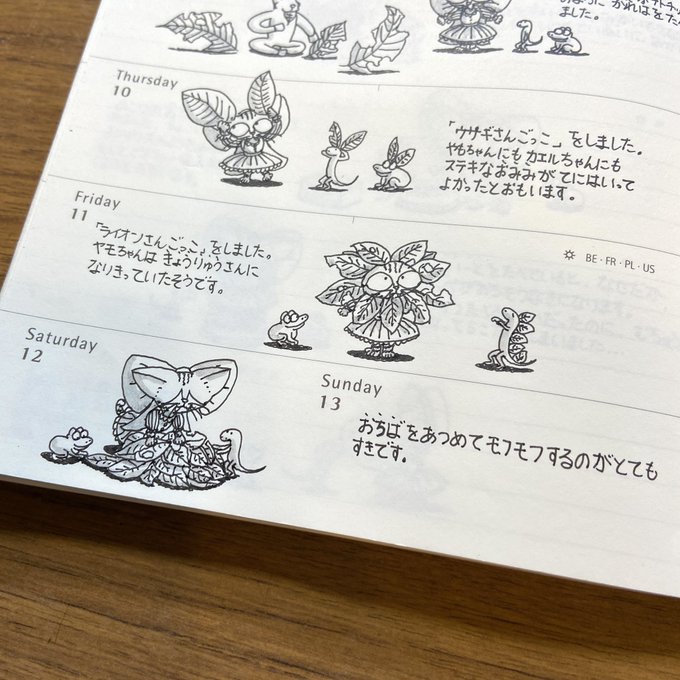 ました。
Thursday
10
「ウサギさんごっこ」をしました。
やもちゃんにもカエルちゃんにも
ステキなおみみがてにはいって
よかったとおもいます。
Friday
11
「ライオンさんごっこ」をしました。
ヤモちゃんはきょうりゅうさんに
なりきっていたそうです。
BE・FR・PL・US
Saturday
12
Sunday
13
おちばをあつめてモフモフするのがとても
すきです。